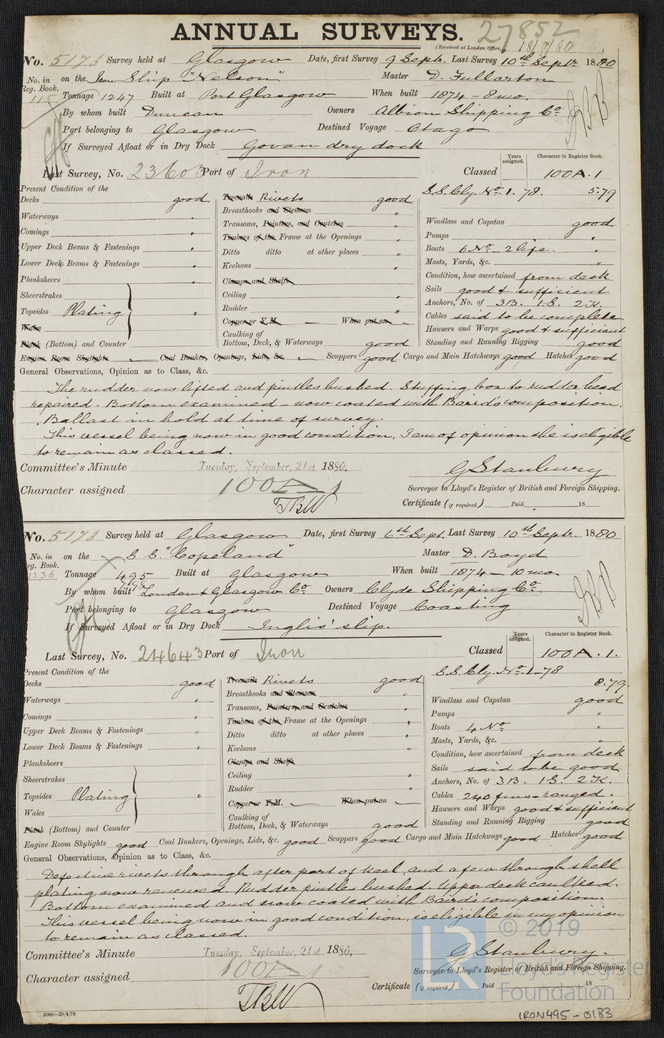 ANNUAL SURVEYS.
27852
(Received at London Office, 18/9/80
No. 5173 Survey held at Glasgow Date, first Survey 9 Septr. Last Survey 10th Septr. 1880
No. in Reg. Book. on the Iron Ship "Nelson" Master D. Fullarton
115 Tonnage 1247 Built at Port Glasgow When built 1874 - 8 mo.
By whom built Duncan Owners Albion Shipping Co
Port belonging to Glasgow Destined Voyage Otago
If Surveyed Afloat or in Dry Dock Govan dry dock
Years assigned. Character in Register Book.
Last Survey, No. 23603 Port of Iron Classed 100A.1
S.S. Cly. No. 1. 78. 5.79
Present Condition of the
Decks good
Waterways "
Comings "
Upper Deck Beams & Fastenings "
Lower Deck Beams & Fastenings "
Planksheers
Sheerstrakes
Topsides Plating "
Wales
Plank (Bottom) and Counter
Treenails Rivets good
Breasthooks and Stemson "
Transoms, Pointers, and Crutches "
Timbers of the Frame at the Openings "
Ditto ditto at other places "
Keelsons "
Clamps and Shelfs
Ceiling "
Rudder "
Copper or Y.M. When put on
Caulking of Bottom, Deck, & Waterways good
Windlass and Capstan good
Pumps "
Boats 6 No - 2 life. "
Masts, Yards, &c. "
Condition, how ascertained from deck
Sails good & sufficient
Anchors, No. of 3B. 1S. 2K.
Cables said to be complete
Hawsers and Warps good & sufficient
Standing and Running Rigging good
Engine Room Skylights Coal Bunkers, Openings, Lids, &c. Scuppers good Cargo and Main Hatchways good Hatches good
General Observations, Opinion as to Class, &c.
The rudder now lifted and pintles bushed. Stuffing box to rudder head
repaired. Bottom examined - now coated with Baird's composition.
Ballast in hold at time of survey.
This vessel being now in good condition, I am of opinion she is eligible
to remain as classed.
Committee's Minute Tuesday, September, 21st 1880.
G Stanbury
Character assigned 100A 1
Surveyor to Lloyd's Register of British and Foreign Shipping.
Certificate (if required) Paid 18
No. 5173 Survey held at Glasgow Date, first Survey 6th Sept. Last Survey 10th Septr. 1880
No. in Reg. Book. on the S.S. "Copeland" Master D. Boyd
1236 Tonnage 495 Built at Glasgow When built 1874 - 10 mo.
798
By whom built London & Glasgow Co. Owners Clyde Shipping Co.
Port belonging to Glasgow Destined Voyage Coasting
If Surveyed Afloat or in Dry Dock Inglis' slip.
Years assigned. Character in Register Book.
Last Survey, No. 24643 Port of Iron Classed 100A.1.
S.S. Cly. No. 1 - 78
8.79
Present Condition of the
Decks good
Waterways "
Comings "
Upper Deck Beams & Fastenings "
Lower Deck Beams & Fastenings "
Planksheers
Sheerstrakes
Topsides Plating "
Wales
Plank (Bottom) and Counter
Treenails Rivets good
Breasthooks and Stemson "
Transoms, Pointers and Crutches "
Timbers of the Frame at the Openings "
Ditto ditto at other places "
Keelsons "
Clamps and Shelfs
Ceiling "
Rudder "
Copper or Y.M. When put on
Caulking of Bottom, Deck, & Waterways good
Windlass and Capstan good
Pumps "
Boats 4 No "
Masts, Yards, &c. "
Condition, how ascertained from deck
Sails said to be good
Anchors, No. of 3B. 1S. 2K.
Cables 240 fms ranged.
Hawsers and Warps good & sufficient
Standing and Running Rigging good
Engine Room Skylights good Coal Bunkers, Openings, Lids, &c. good Scuppers good Cargo and Main Hatchways good Hatches good
General Observations, Opinion as to Class, &c.
Defective rivets through after part of keel, and a few through shell
plating now renewed. Rudder pintles bushed. Upper deck caulked.
Bottom examined and now coated with Baird's composition.
This vessel being now in good condition, is eligible in my opinion
to remain as classed.
Committee's Minute Tuesday, September, 21st 1880.
G Stanbury.
Character assigned 100A 1
Surveyor to Lloyd's Register of British and Foreign Shipping.
Certificate (if required) Paid 18
© 2019
Lloyd's Register
Foundation
IRON495-0183